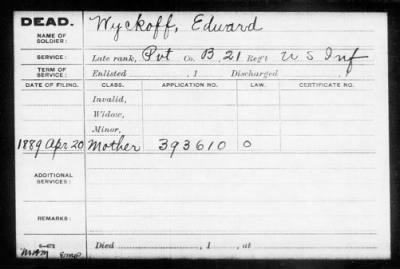 DEAD. Wyckoff, Edward
NAME OF SOLDIER:
SERVICE: Late rank, Pvt Co. B, 21 Reg't U S Inf
TERM OF SERVICE: Enlisted , 1 Discharged , 1
DATE OF FILING. CLASS. APPLICATION NO. LAW. CERTIFICATE NO.
Invalid,
Widow,
Minor,
1889 Apr 20 Mother 393610 O
ADDITIONAL SERVICES:
REMARKS:
Died , 1 , at